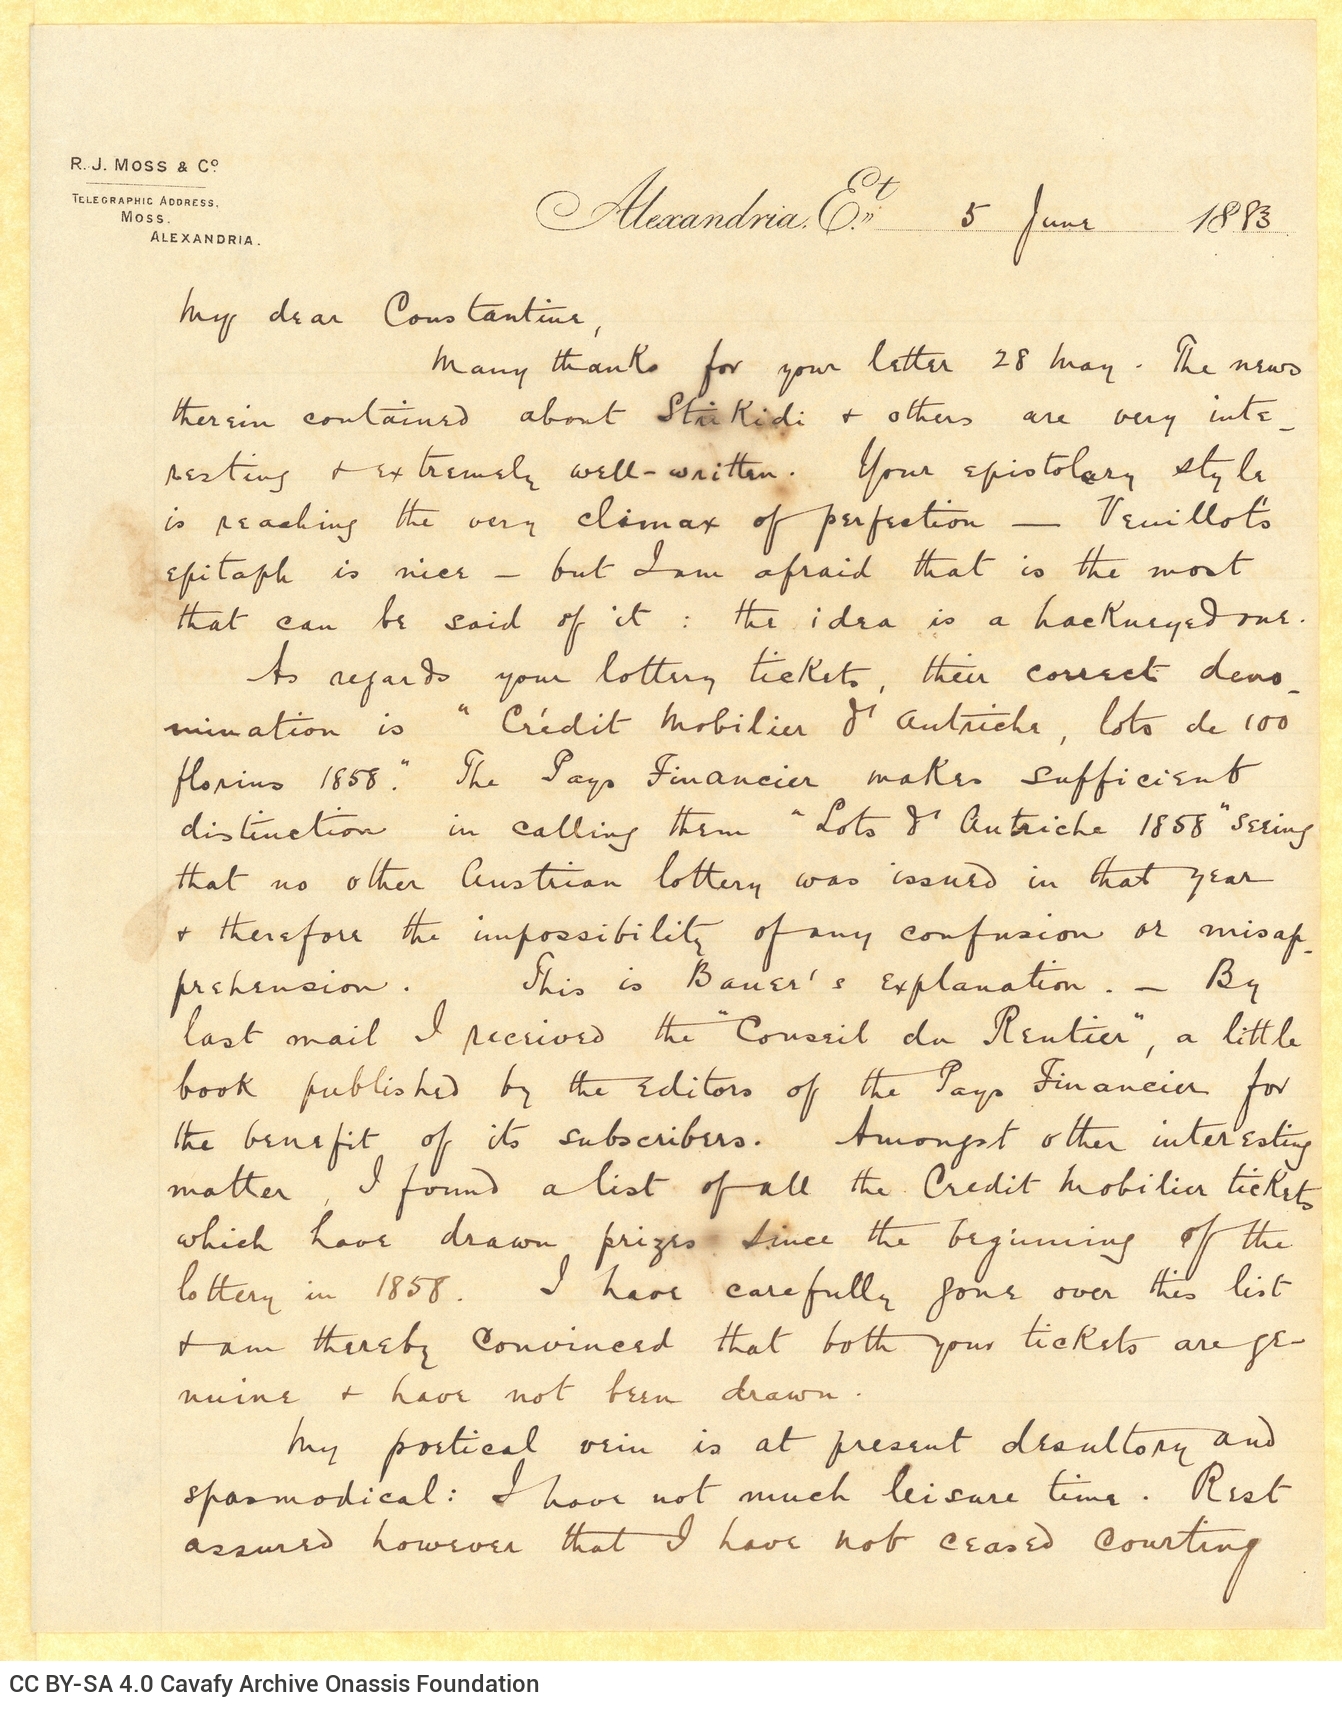 R. J. MOSS & Cº
TELEGRAPHIC ADDRESS.
MOSS.
ALEXANDRIA.
Alexandria. Et. 5 June 1883
My dear Constantine,
Many thanks for your letter 28 May. The news
therein contained about StriKidi & others are very inte_
resting & extremely well-written. Your epistolary style
is reaching the very climax of perfection — Veuillot's
epitaph is nice — but I am afraid that is the most
that can be said of it : the idea is a hackneyed one.
As regards your lottery tickets, their correct deno_
mination is " Crédit Mobilier d'Autriche, lots de 100
florins 1858." The Pays Financier makes sufficient
distinction in calling them "Lots d'Autriche 1858" seeing
that no other Austrian lottery was issued in that year
& therefore the impossibility of any confusion or misap_
prehension. This is Bauer's explanation. — By
last mail I received the "Conseil du Rentier", a little
book published by the Editors of the Pays Financier for
the benefit of its subscribers. Amongst other interesting
matter, I found a list of all the Credit Mobilier tickets
which have drawn prizes since the beginning of the
lottery in 1858. I have carefully gone over this list
& am thereby convinced that both your tickets are ge-
nuine & have not been drawn.
My poetical vein is at present desultory and
spasmodical: I have not much leisure time. Rest
assured however that I have not ceased courting
CC BY-SA 4.0 Cavafy Archive Onassis Foundation